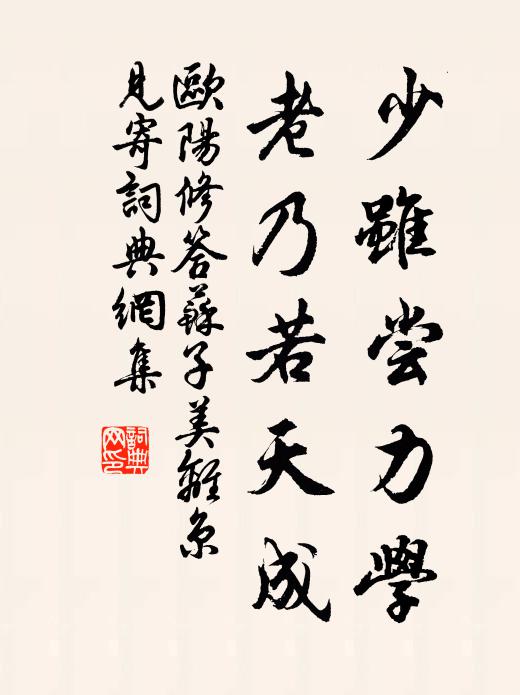 少雖嘗力學
老乃若天成
歐陽修答蘇子美離京
見寄詞典網集
詞典
网印